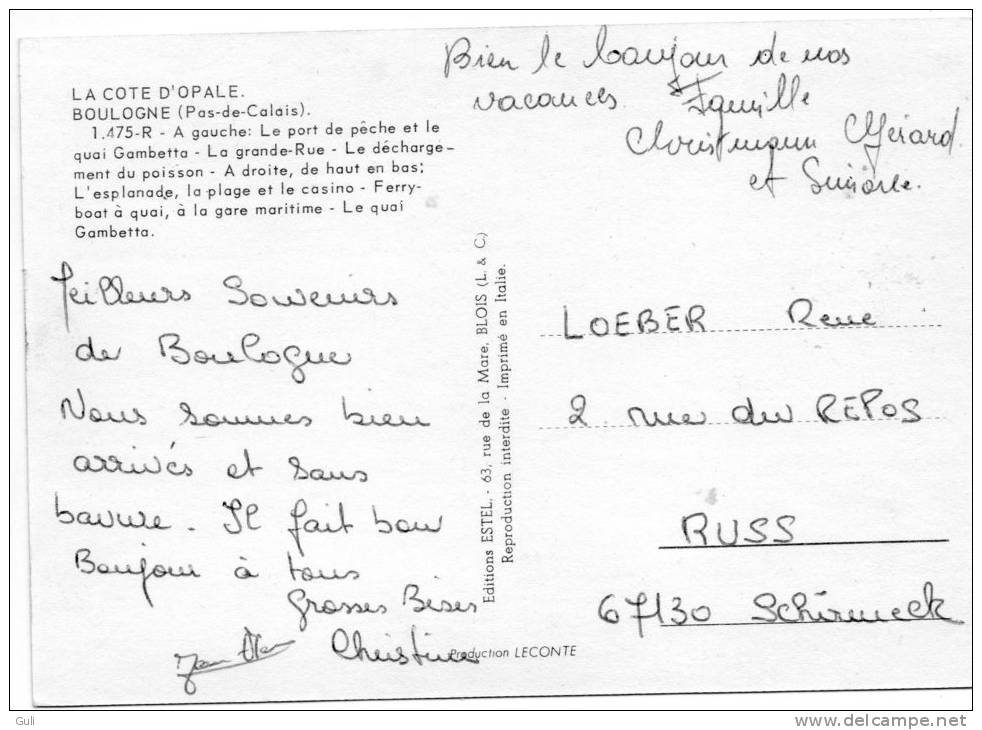 LA COTE D'OPALE.
BOULOGNE (Pas-de-Calais).
1.475-R - A gauche: Le port de pêche et le
quai Gambetta - La grande-Rue - Le décharge-
ment du poisson - A droite, de haut en bas:
L'esplanade, la plage et le casino - Ferry-
boat à quai, à la gare maritime - Le quai
Gambetta.
Bien le bonjour de nos
vacances. Famille
Christmann Gérard
et
Meilleurs Souvenirs
de Boulogne
Nous sommes bien
arrivés et sans
bavure. Il fait bon
Bonjour à tous
Grosses Bises
Christine
Editions ESTEL, - 63, rue de la Mare, BLOIS (L. & C.)
Reproduction interdite - Imprimé en Italie.
LOEBER René
2 rue du REPOS
RUSS
67130 Schirmeck
Production LECONTE
Guli
www.delcampe.net